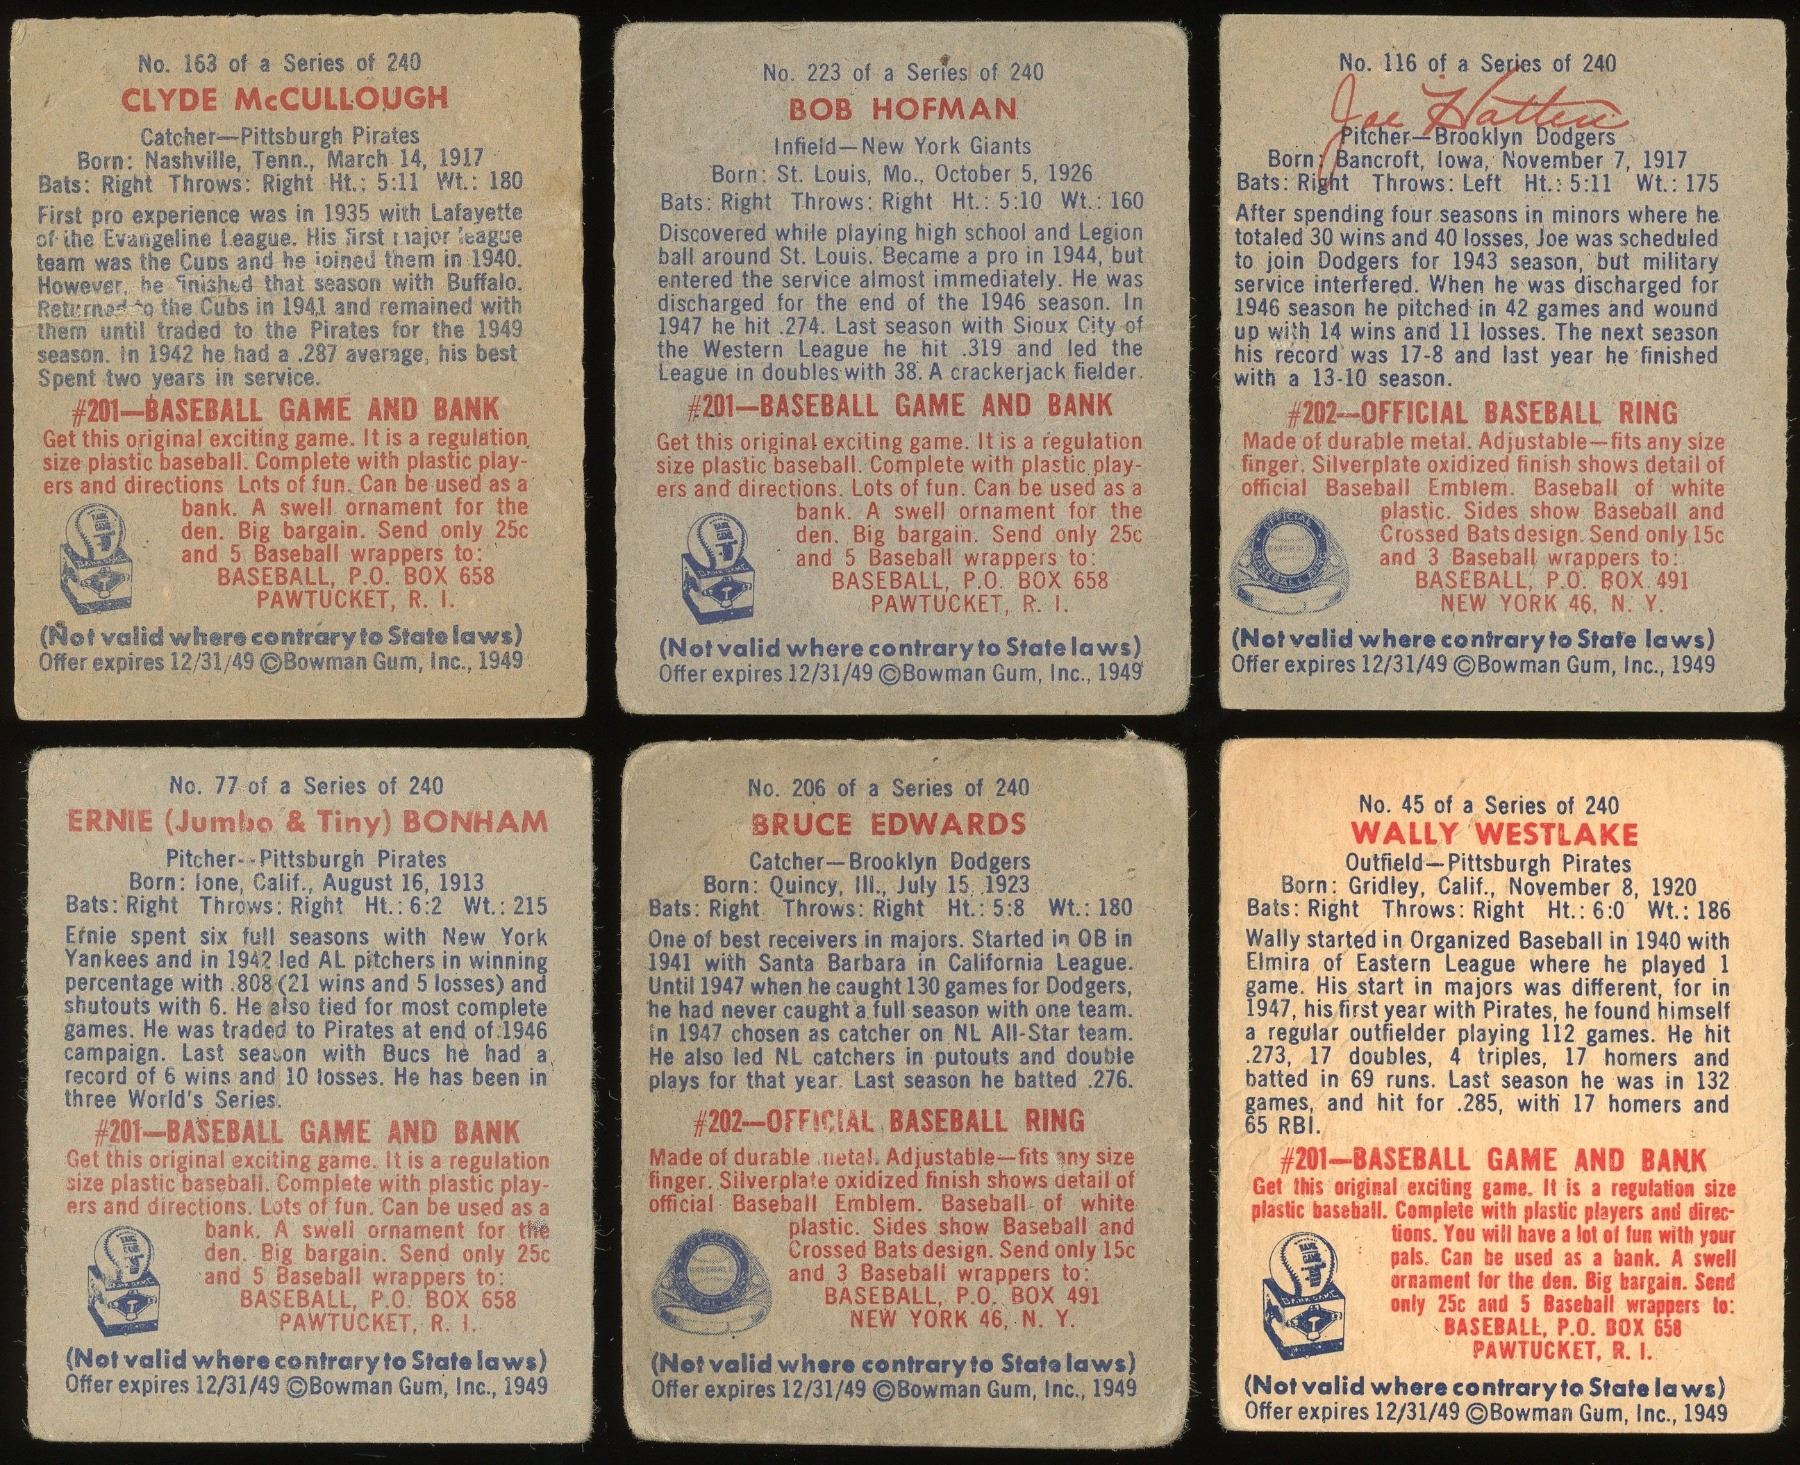 No. 163 of a Series of 240
CLYDE McCULLOUGH
Catcher—Pittsburgh Pirates
Born: Nashville, Tenn., March 14, 1917
Bats: Right Throws: Right Ht.: 5:11 Wt.: 180
First pro experience was in 1935 with Lafayette
of the Evangeline League. His first major league
team was the Cubs and he joined them in 1940.
However, he finished that season with Buffalo.
Returned to the Cubs in 1941 and remained with
them until traded to the Pirates for the 1949
season. In 1942 he had a .287 average, his best
Spent two years in service.
#201—BASEBALL GAME AND BANK
Get this original exciting game. It is a regulation
size plastic baseball. Complete with plastic play-
ers and directions Lots of fun. Can be used as a
bank. A swell ornament for the
den. Big bargain. Send only 25c
and 5 Baseball wrappers to:
BASEBALL, P.O. BOX 658
PAWTUCKET, R. I.
(Not valid where contrary to State laws)
Offer expires 12/31/49 ©Bowman Gum, Inc., 1949
No. 223 of a Series of 240
BOB HOFMAN
Infield—New York Giants
Born: St. Louis, Mo., October 5, 1926
Bats: Right Throws: Right Ht.: 5:10 Wt.: 160
Discovered while playing high school and Legion
ball around St. Louis. Became a pro in 1944, but
entered the service almost immediately. He was
discharged for the end of the 1946 season. In
1947 he hit .274. Last season with Sioux City of
the Western League he hit .319 and led the
League in doubles with 38. A crackerjack fielder.
#201—BASEBALL GAME AND BANK
Get this original exciting game. It is a regulation
size plastic baseball. Complete with plastic play-
ers and directions. Lots of fun. Can be used as a
bank. A swell ornament for the
den. Big bargain. Send only 25c
and 5 Baseball wrappers to:
BASEBALL, P.O. BOX 658
PAWTUCKET, R. I.
(Not valid where contrary to State laws)
Offer expires 12/31/49 ©Bowman Gum, Inc., 1949
No. 116 of a Series of 240
Joe Hatten
Pitcher—Brooklyn Dodgers
Born: Bancroft, Iowa, November 7, 1917
Bats: Right Throws: Left Ht.: 5:11 Wt.: 175
After spending four seasons in minors where he
totaled 30 wins and 40 losses, Joe was scheduled
to join Dodgers for 1943 season, but military
service interfered. When he was discharged for
1946 season he pitched in 42 games and wound
up with 14 wins and 11 losses. The next season
his record was 17-8 and last year he finished
with a 13-10 season.
#202—OFFICIAL BASEBALL RING
Made of durable metal. Adjustable—fits any size
finger. Silverplate oxidized finish shows detail of
official Baseball Emblem. Baseball of white
plastic. Sides show Baseball and
Crossed Bats design. Send only 15c
and 3 Baseball wrappers to:
BASEBALL, P.O. BOX 491
NEW YORK 46, N. Y.
(Not valid where contrary to State laws)
Offer expires 12/31/49 ©Bowman Gum, Inc., 1949
No. 77 of a Series of 240
ERNIE (Jumbo & Tiny) BONHAM
Pitcher--Pittsburgh Pirates
Born: Ione, Calif., August 16, 1913
Bats: Right Throws: Right Ht.: 6:2 Wt.: 215
Ernie spent six full seasons with New York
Yankees and in 1942 led AL pitchers in winning
percentage with .808 (21 wins and 5 losses) and
shutouts with 6. He also tied for most complete
games. He was traded to Pirates at end of 1946
campaign. Last season with Bucs he had a
record of 6 wins and 10 losses. He has been in
three World's Series.
#201—BASEBALL GAME AND BANK
Get this original exciting game. It is a regulation
size plastic baseball. Complete with plastic play-
ers and directions. Lots of fun. Can be used as a
bank. A swell ornament for the
den. Big bargain. Send only 25c
and 5 Baseball wrappers to:
BASEBALL, P.O. BOX 658
PAWTUCKET, R. I.
(Not valid where contrary to State laws)
Offer expires 12/31/49 ©Bowman Gum, Inc., 1949
No. 206 of a Series of 240
BRUCE EDWARDS
Catcher—Brooklyn Dodgers
Born: Quincy, Ill., July 15, 1923
Bats: Right Throws: Right Ht.: 5:8 Wt.: 180
One of best receivers in majors. Started in OB in
1941 with Santa Barbara in California League.
Until 1947 when he caught 130 games for Dodgers,
he had never caught a full season with one team.
In 1947 chosen as catcher on NL All-Star team.
He also led NL catchers in putouts and double
plays for that year. Last season he batted .276.
#202—OFFICIAL BASEBALL RING
Made of durable metal. Adjustable—fits any size
finger. Silverplate oxidized finish shows detail of
official Baseball Emblem. Baseball of white
plastic. Sides show Baseball and
Crossed Bats design. Send only 15c
and 3 Baseball wrappers to:
BASEBALL, P.O. BOX 491
NEW YORK 46, N. Y.
(Not valid where contrary to State laws)
Offer expires 12/31/49 ©Bowman Gum, Inc., 1949
No. 45 of a Series of 240
WALLY WESTLAKE
Outfield—Pittsburgh Pirates
Born: Gridley, Calif., November 8, 1920
Bats: Right Throws: Right Ht.: 6:0 Wt.: 186
Wally started in Organized Baseball in 1940 with
Elmira of Eastern League where he played 1
game. His start in majors was different, for in
1947, his first year with Pirates, he found himself
a regular outfielder playing 112 games. He hit
.273, 17 doubles, 4 triples, 17 homers and
batted in 69 runs. Last season he was in 132
games, and hit for .285, with 17 homers and
65 RBI.
#201—BASEBALL GAME AND BANK
Get this original exciting game. It is a regulation size
plastic baseball. Complete with plastic players and direc-
tions. You will have a lot of fun with your
pals. Can be used as a bank. A swell
ornament for the den. Big bargain. Send
only 25c and 5 Baseball wrappers to:
BASEBALL, P.O. BOX 658
PAWTUCKET, R. I.
(Not valid where contrary to State laws)
Offer expires 12/31/49 ©Bowman Gum, Inc., 1949